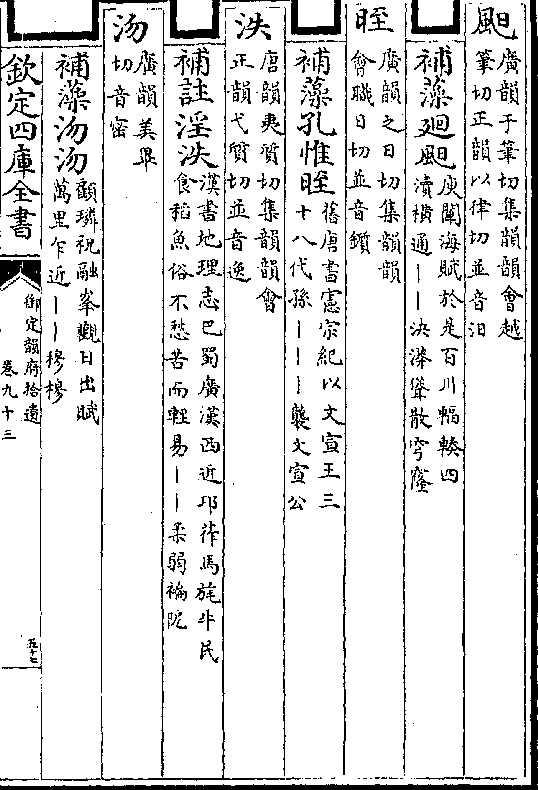 䬍廣韻于筆切集韻韻會越
筆切正韻以律切並音汨
補藻廻䬍庾闡海賦於是百川輻輳四
瀆橫通——泱漭聳散穹窿
晊廣韻之日切集韻韻
會職日切並音鑕
補藻孔惟晊舊唐書憲宗紀以文宣王三
十八代孫———襲文宣公
泆唐韻夷質切集韻韻會
正韻弋質切並音逸
補註淫泆漢書地理志巴蜀廣漢西近邛莋馬旄牛民
食稻魚俗不愁苦而輕易——柔弱褊阸
沕廣韻美畢
切音密
補藻沕沕顧璘祝融峯觀日出賦
萬里乍近——穆穆
欽定四庫全書
御定韻府拾遺
卷九十三
五十七